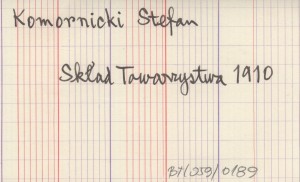 Komornicki Stefan
Skład Towarzystwa 1910
BJ/259/0189